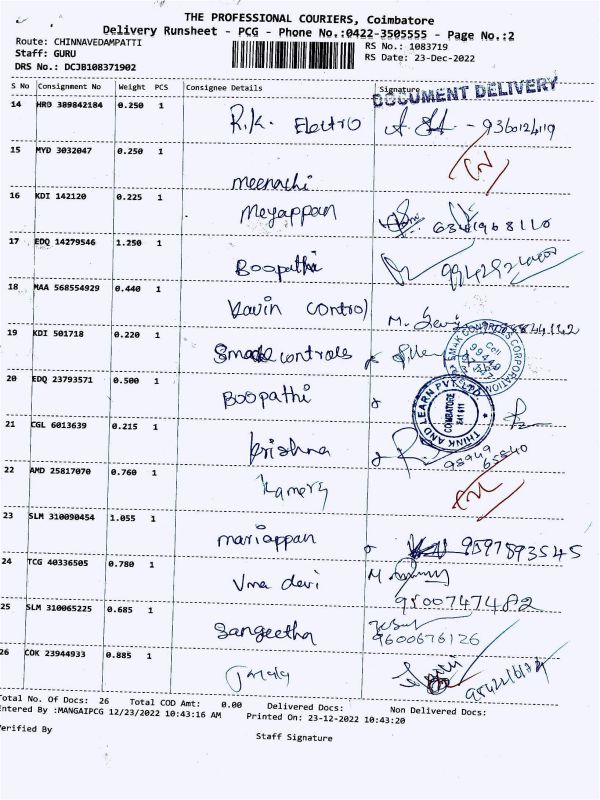 THE PROFESSIONAL COURIERS, Coimbatore
Delivery Runsheet - PCG - Phone No.:0422-3505555 - Page No.:2
Route: CHINNAVEDAMPATTI RS No.: 1083719
Staff: GURU RS Date: 23-Dec-2022
DRS No.: DCJB108371902
S No Consignment No Weight PCS Consignee Details Signature
DOCUMENT DELIVERY
14 HRD 389842184 0.250 1 R.K. Electro
15 MYD 3032047 0.250 1 meenachi
16 KDI 142120 0.225 1 Meyappan
17 EDQ 14279546 1.250 1 Boopathi
18 MAA 568554929 0.440 1 Kavin Control
19 KDI 501718 0.220 1 controls
20 EDQ 23793571 0.500 1 Boopathi
THINK AND LEARN PVT LTD
COIMBATORE
21 CGL 6013639 0.215 1 Krishna 98949 65840
22 AMD 25817070 0.760 1
23 SLM 310090454 1.055 1 mariappan 9597893545
24 TCG 40336505 0.780 1 Uma devi
25 SLM 310065225 0.685 1 Sangeetha 9600676126
26 COK 23944933 0.885 1
Total No. Of Docs: 26 Total COD Amt: 0.00 Delivered Docs: Non Delivered Docs:
Entered By :MANGAIPCG 12/23/2022 10:43:16 AM Printed On: 23-12-2022 10:43:20
Verified By
Staff Signature